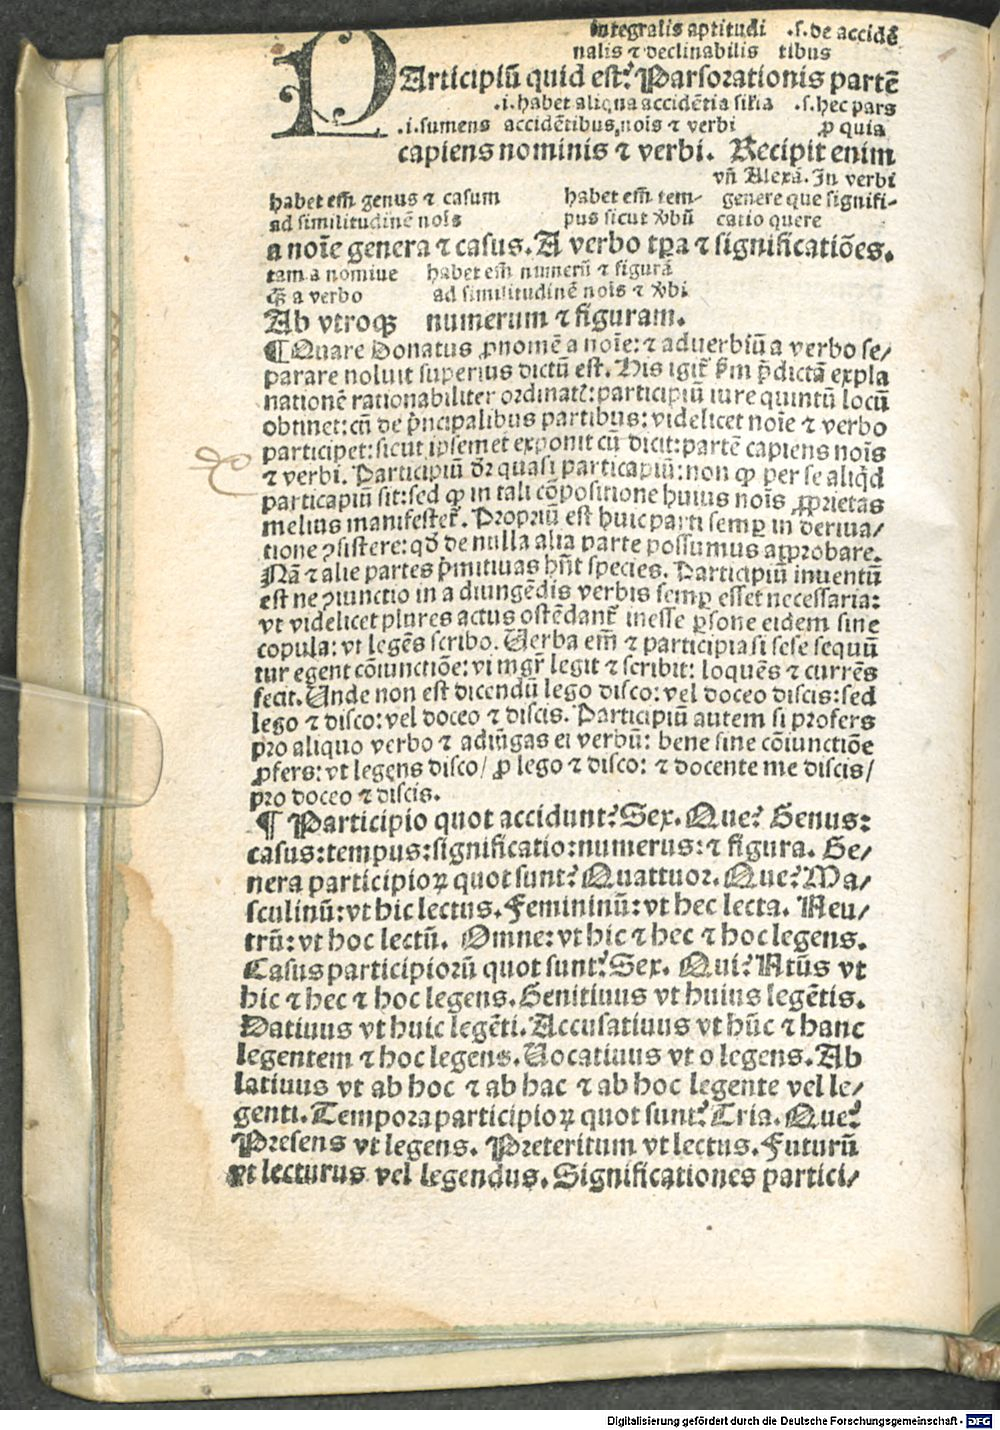 integralis aptitudi .s. de accidē
nalis ⁊ declinabilis tibus
PArticipiū quid est? Pars orationis partē
.i. habet aliqua accidētia silia .s. hec pars
.i. sumens accidētibus nois ⁊ verbi ꝓ quia
capiens nominis ⁊ verbi. Recipit enim
vn̄ Alexā. In verbi
habet em̄ genus ⁊ casum habet em̄ tem- genere que signifi-
ad similitudinē nois pus sicut v̓bū catio quere
a noīe genera ⁊ casus. A verbo tꝑa ⁊ significatiōes.
tam a nomine habet em̄ numerū ⁊ figurā
qꝫ a verbo ad similitudinē nois ⁊ v̓bi
Ab vtroqꝫ numerum ⁊ figuram.
¶ Quare Donatus ꝓnomē a noīe: ⁊ aduerbiū a verbo se/
parare noluit superius dictū est. His igit̄ ẜm p̄dictā expla
nationē rationabiliter ordinat̄: participiū iure quintū locū
obtinet: cū de p̓ncipalibus partibus: videlicet noīe ⁊ verbo
participet: sicut ipsemet exponit cū dicit: partē capiens nois
⁊ verbi. Participiū dr̄ quasi particapiū: non qꝙ per se aliq̓d
particapiū sit: sed ꝙ in tali cōpositione huius nois ꝓprietas
melius manifestet̄. Propriū est huic parti semꝑ in deriua/
tione ꝯsistere: qd̄ de nulla alia parte possumus approbare.
Nā ⁊ alie partes p̓mitiuas hn̄t species. Participiū inuentū
est ne ꝯiunctio in adiungēdis verbis semꝑ esset necessaria:
vt videlicet plures actus ostēdant̄ inesse ꝑsone eidem sine
copula: vt legēs scribo. Verba em̄ ⁊ participia si sese sequū
tur egent cōiunctiōe: vt mgr̄ legit ⁊ scribit: loquēs ⁊ currēs
fecit. Unde non est dicendū lego disco: vel doceo discis: sed
lego ⁊ disco: vel doceo ⁊ discis. Participiū autem si profers
pro aliquo verbo ⁊ adiūgas ei verbū: bene sine cōiunctiōe
ꝓfers: vt legens disco/ ꝓ lego ⁊ disco: ⁊ docente me discis/
pro doceo ⁊ discis.
¶ Participio quot accidunt? Sex. Que? Genus:
casus: tempus: significatio: numerus: ⁊ figura. Ge/
nera participioꝝ quot sunt? Quattuor. Que? Ma/
sculinū: vt hic lectus. Femininū: vt hec lecta. Neu/
trū: vt hoc lectū. Omne: vt hic ⁊ hec ⁊ hoc legens.
Casus participiorū quot sunt? Sex. Qui? Ntūs vt
hic ⁊ hec ⁊ hoc legens. Genitiuus vt huius legētis.
Datiuus vt huic legēti. Accusatiuus vt hūc ⁊ hanc
legentem ⁊ hoc legens. Vocatiuus vt o legens. Ab
latiuus vt ab hoc ⁊ ab hac ⁊ ab hoc legente vel le/
genti. Tempora participioꝝ quot sunt? Tria. Que?
Presens vt legens. Preteritum vt lectus. Futurū
vt lecturus vel legendus. Significationes partici/
Digitalisierung gefördert durch die Deutsche Forschungsgemeinschaft - DFG